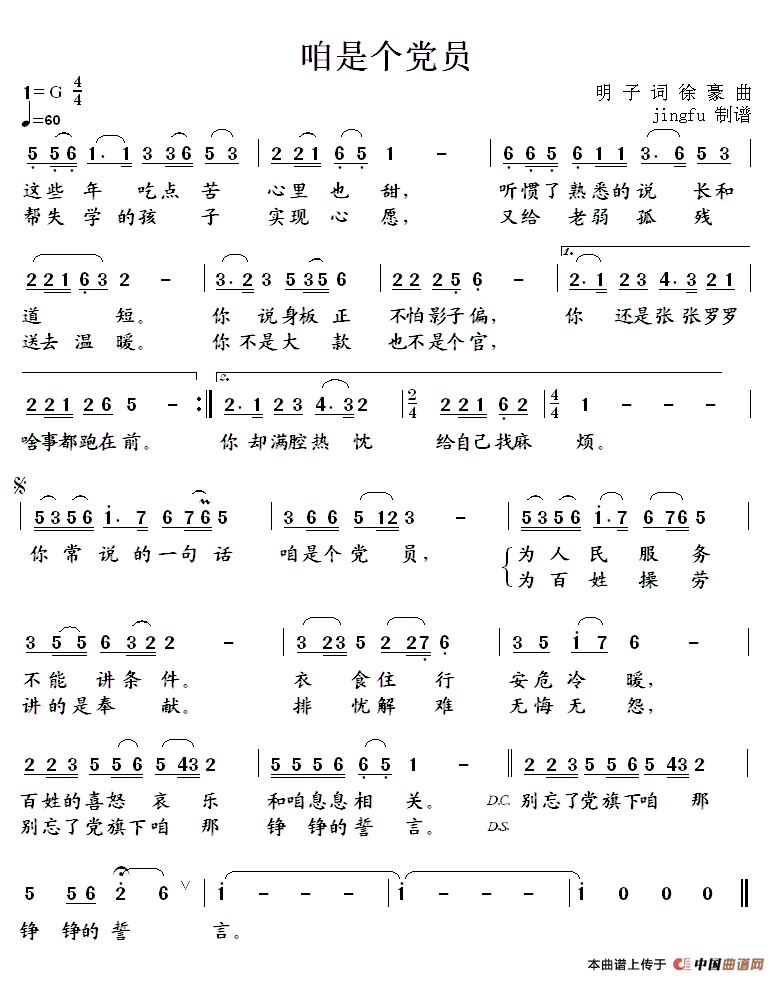 咱是个党员
1=G 4/4
明子词 徐豪曲
♩=60
jingfu 制谱
5 5 6 1. 1 3 3 6 5 3 | 2 2 1 6 5 1 - | 6 6 5 6 1 1 3. 6 5 3 |
这些年吃点苦 心里也甜, 听惯了熟悉的说长和
帮失学的孩子 实现心愿, 又给老弱孤残
1.
2 2 1 6 3 2 - | 3. 2 3 5 3 5 6 | 2 2 2 5 6 - | 2. 1 2 3 4. 3 2 1 |
道短。 你说身板正 不怕影子偏, 你还是张张罗罗
送去温暖。 你不是大款 也不是个官,
2.
2 2 1 2 6 5 - :| 2. 1 2 3 4. 3 2 | 2/4 2 2 1 6 2 | 4/4 1 - - - |
啥事都跑在前。 你却满腔热忱 给自己找麻烦。
| 5 3 5 6 1. 7 6 7 6 5 | 3 6 6 5 1 2 3 - | 5 3 5 6 1. 7 6 7 6 5 |
你常说的一句话 咱是个党员, 为人民服务
为百姓操劳
3 5 5 6 3 2 2 - | 3 2 3 5 2 2 7 6 | 3 5 1 7 6 - |
不能讲条件。 衣食住行 安危冷暖,
讲的是奉献。 排忧解难 无悔无怨,
2 2 3 5 5 6 5 4 3 2 | 5 5 5 6 6 5 1 - || 2 2 3 5 5 6 5 4 3 2 |
百姓的喜怒哀乐 和咱息息相关。 D.C. 别忘了党旗下咱那
别忘了党旗下咱那 铮铮的誓言。 D.S.
5 5 6 2 6 ∨ | 1 - - - | 1 - - - | 1 0 0 0 ||
铮铮的誓言。
本曲谱上传于 中国曲谱网